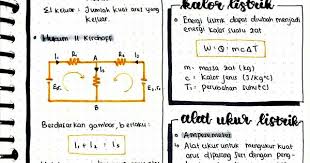 ΣI keluar : Jumlah kuat arus yang
keluar.
• Hukum II Kirchoff
I₁ R₁ A R₂ I₂
I₃
E₁, r₁ E₂, r₂
B
Berdasarkan gambar, berlaku :
I₁ + I₂ = I₃
kalor listrik
• Energi listrik dapat diubah menjadi
energi kalor suatu zat
W = Q = mcΔT
m : massa zat (kg)
c : kalor jenis (J/kg°C)
T : perubahan suhu (°C)
alat ukur listrik
• Amperemeter
↳ Alat ukur untuk mengukur kuat
arus dipasang seri dengan peng-